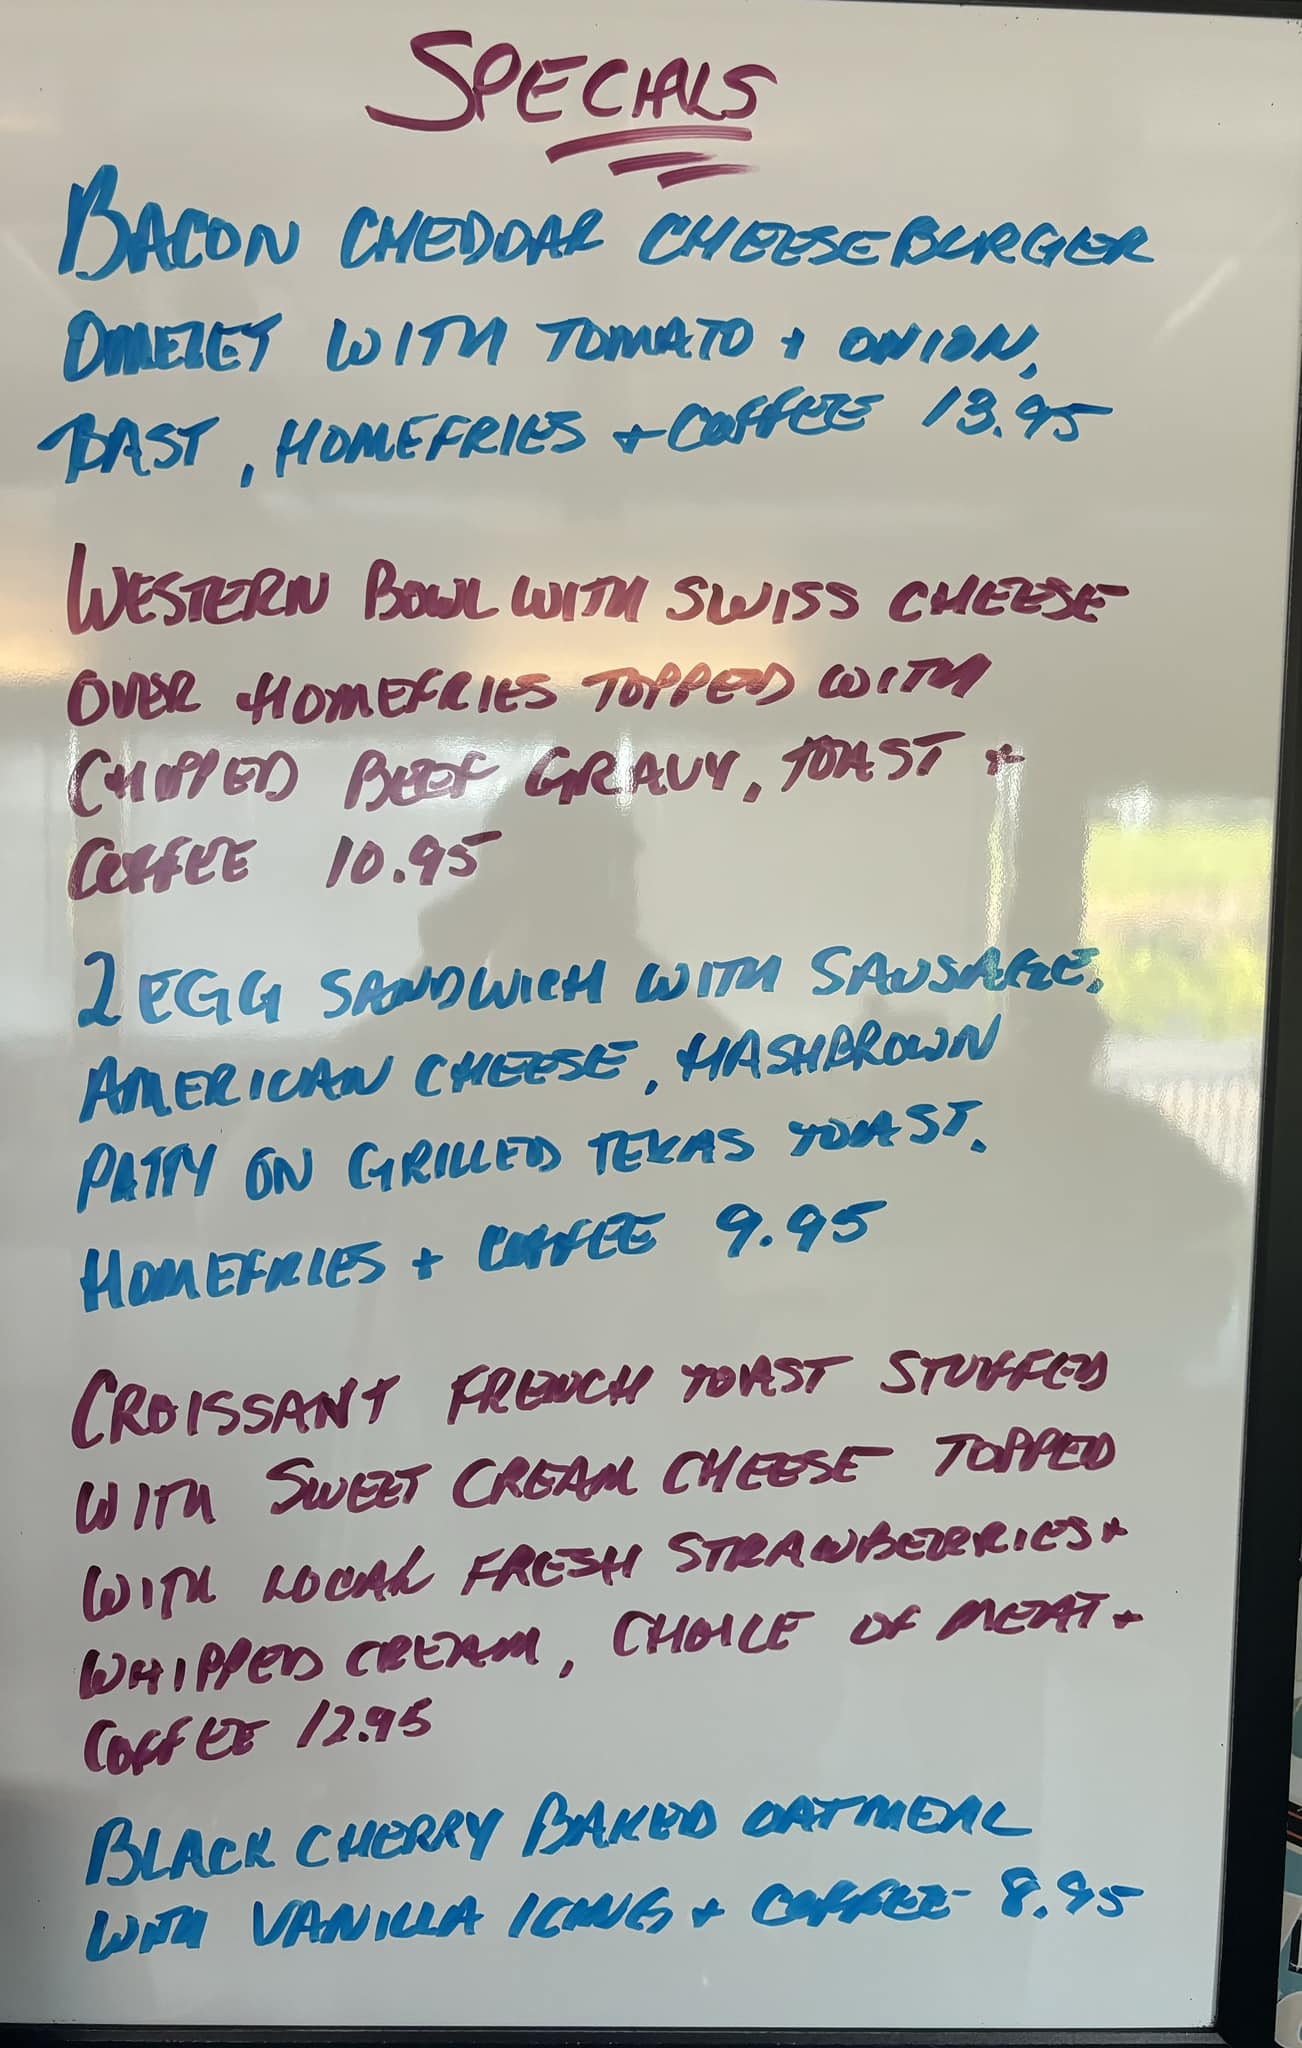 SPECIALS
BACON CHEDDAR CHEESEBURGER
OMELET WITH TOMATO + ONION,
TOAST, HOMEFRIES + COFFEE 13.95
WESTERN BOWL WITH SWISS CHEESE
OVER HOMEFRIES TOPPED WITH
CHIPPED BEEF GRAVY, TOAST +
COFFEE 10.95
2 EGG SANDWICH WITH SAUSAGE,
AMERICAN CHEESE, HASHBROWN
PATTY ON GRILLED TEXAS TOAST,
HOMEFRIES + COFFEE 9.95
CROISSANT FRENCH TOAST STUFFED
WITH SWEET CREAM CHEESE TOPPED
WITH LOCAL FRESH STRAWBERRIES +
WHIPPED CREAM, CHOICE OF MEAT +
COFFEE 12.95
BLACK CHERRY BAKED OATMEAL
WITH VANILLA ICING + COFFEE 8.95